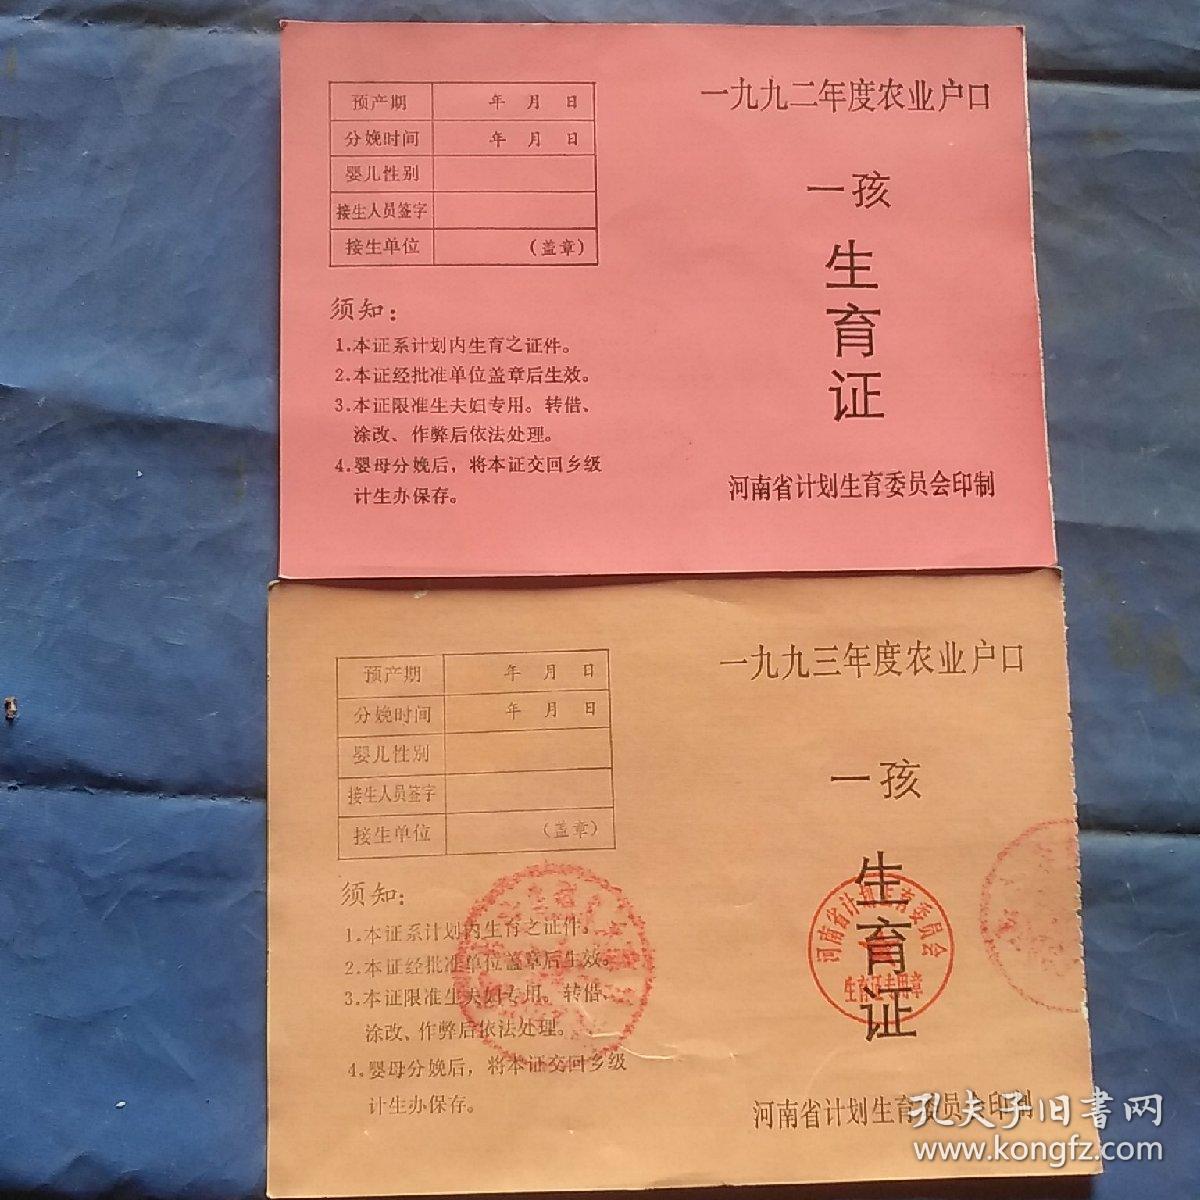 预产期 年 月 日
分娩时间 年 月 日
婴儿性别
接生人员签字
接生单位 (盖章)
须知：
1.本证系计划内生育之证件。
2.本证经批准单位盖章后生效。
3.本证限准生夫妇专用。转借、
涂改、作弊后依法处理。
4.婴母分娩后，将本证交回乡级
计生办保存。
一九九二年度农业户口
一孩
生
育
证
河南省计划生育委员会印制
预产期 年 月 日
分娩时间 年 月 日
婴儿性别
接生人员签字
接生单位 (盖章)
须知：
1.本证系计划内生育之证件。
2.本证经批准单位盖章后生效。
3.本证限准生夫妇专用。转借、
涂改、作弊后依法处理。
4.婴母分娩后，将本证交回乡级
计生办保存。
一九九三年度农业户口
一孩
生
育
证
河南省计划生育委员会
生育证专用章
河南省计划生育委员会印制
孔夫子旧书网
www.kongfz.com